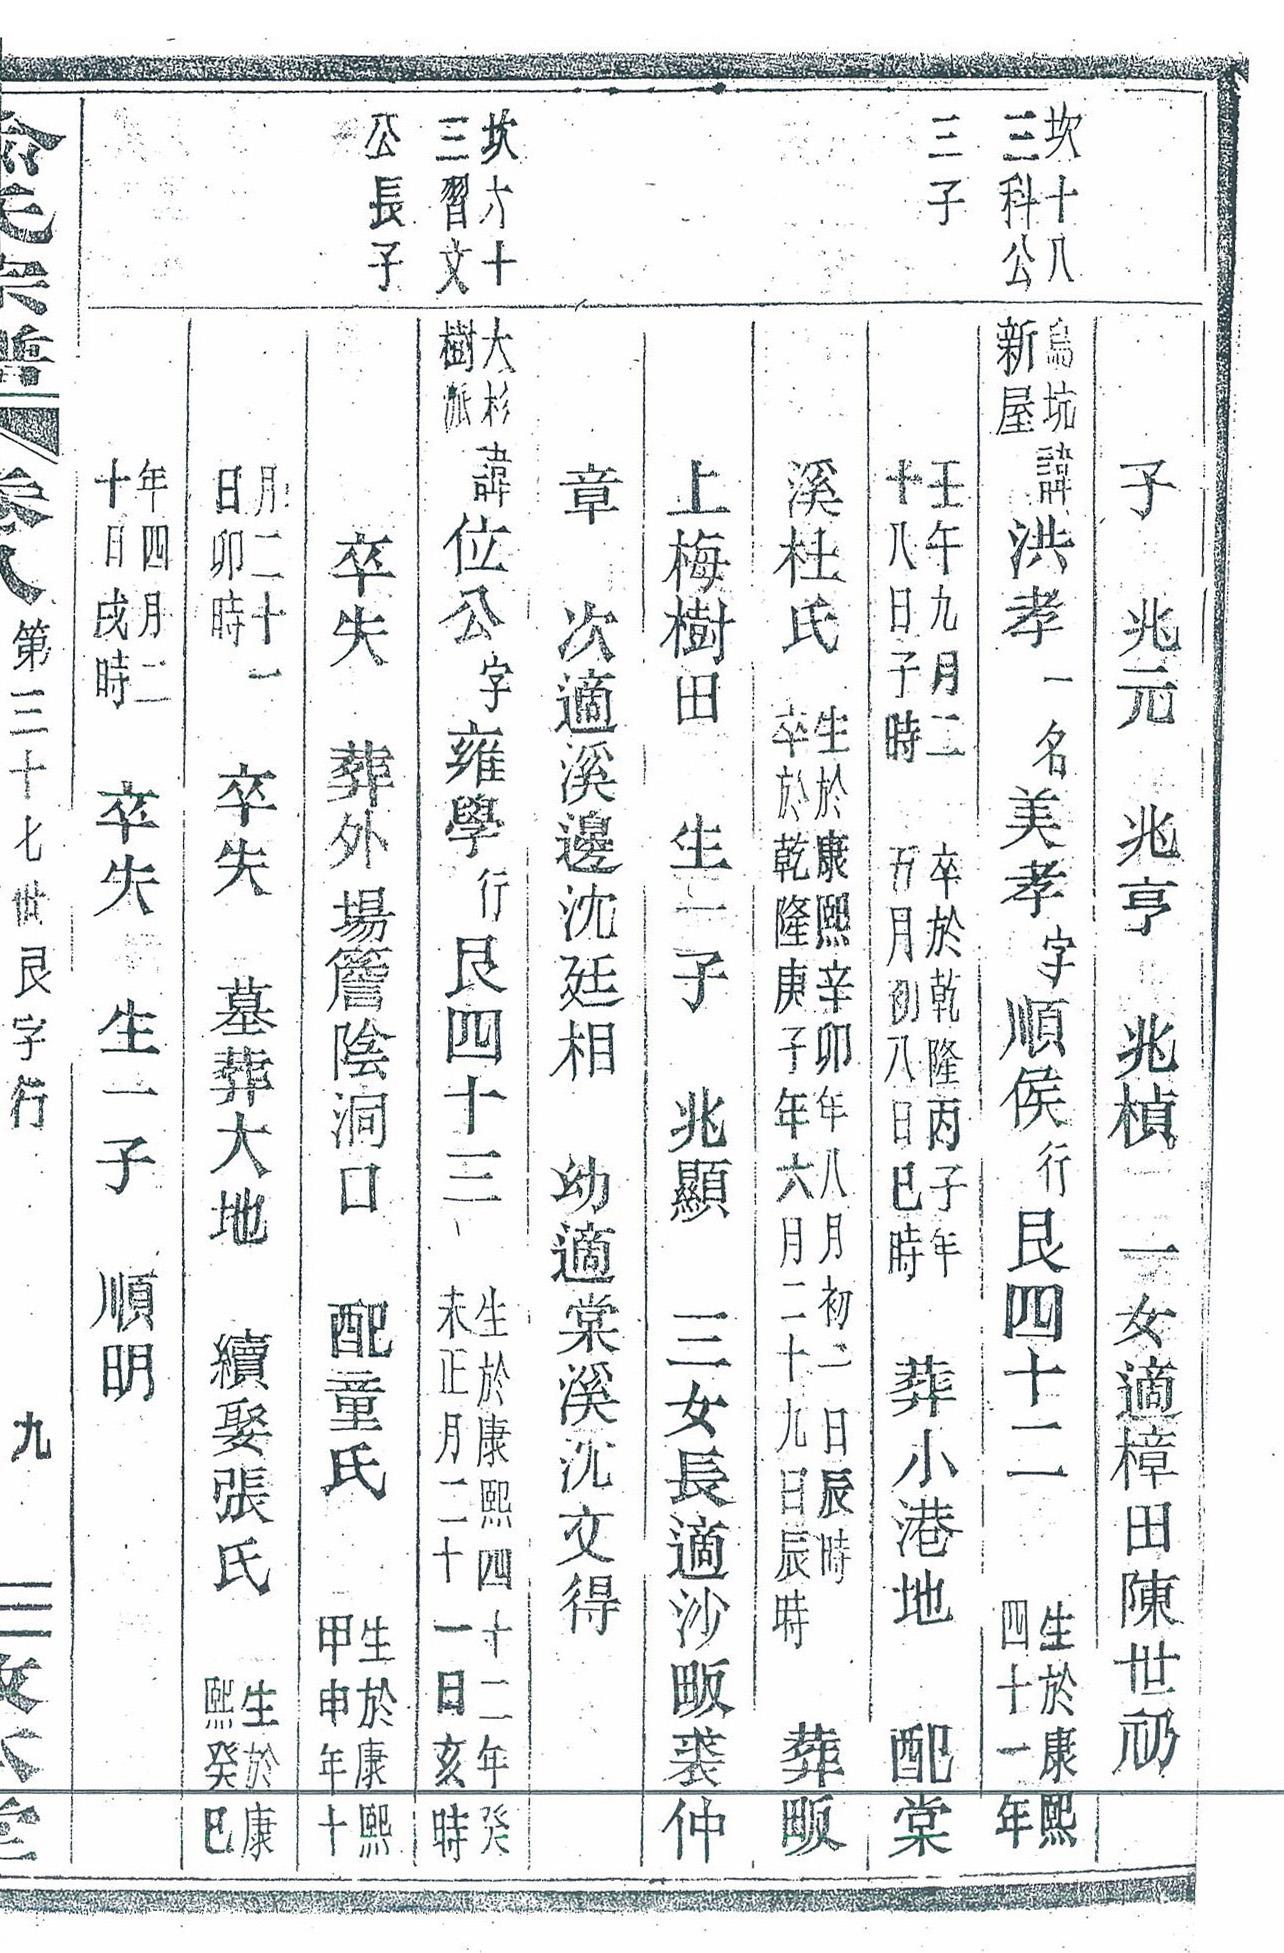 子　兆元　兆亨　兆楨　一女適樟田陳世礽
坎十八
三科公
三子
烏坑
新屋
諱洪孝一名美孝字順侯行艮四十二
生於康熙
四十一年
壬午九月二
十八日子時
卒於乾隆丙子年
五月初八日巳時
葬小港地　配棠
溪杜氏
生於康熙辛卯年八月初二日辰時
卒於乾隆庚子年六月二十九日辰時
葬畈
上梅樹田　生一子　兆顯　三女長適沙畈裘仲
章　次適溪邊沈廷相　幼適棠溪沈文得
坎六十
三習文
公長子
大杉
樹派
諱位公字雍學行艮四十三
生於康熙四十二年癸
未正月二十一日亥時
卒失　葬外場簷陰洞口　配童氏
生於康熙
甲申年十
月二十一
日卯時
卒失　墓葬大地　續娶張氏
生於康
熙癸巳
年四月二
十日戌時
卒失　生一子　順明
俞氏宗譜　卷八　第三十七世艮字行　九　敦本堂